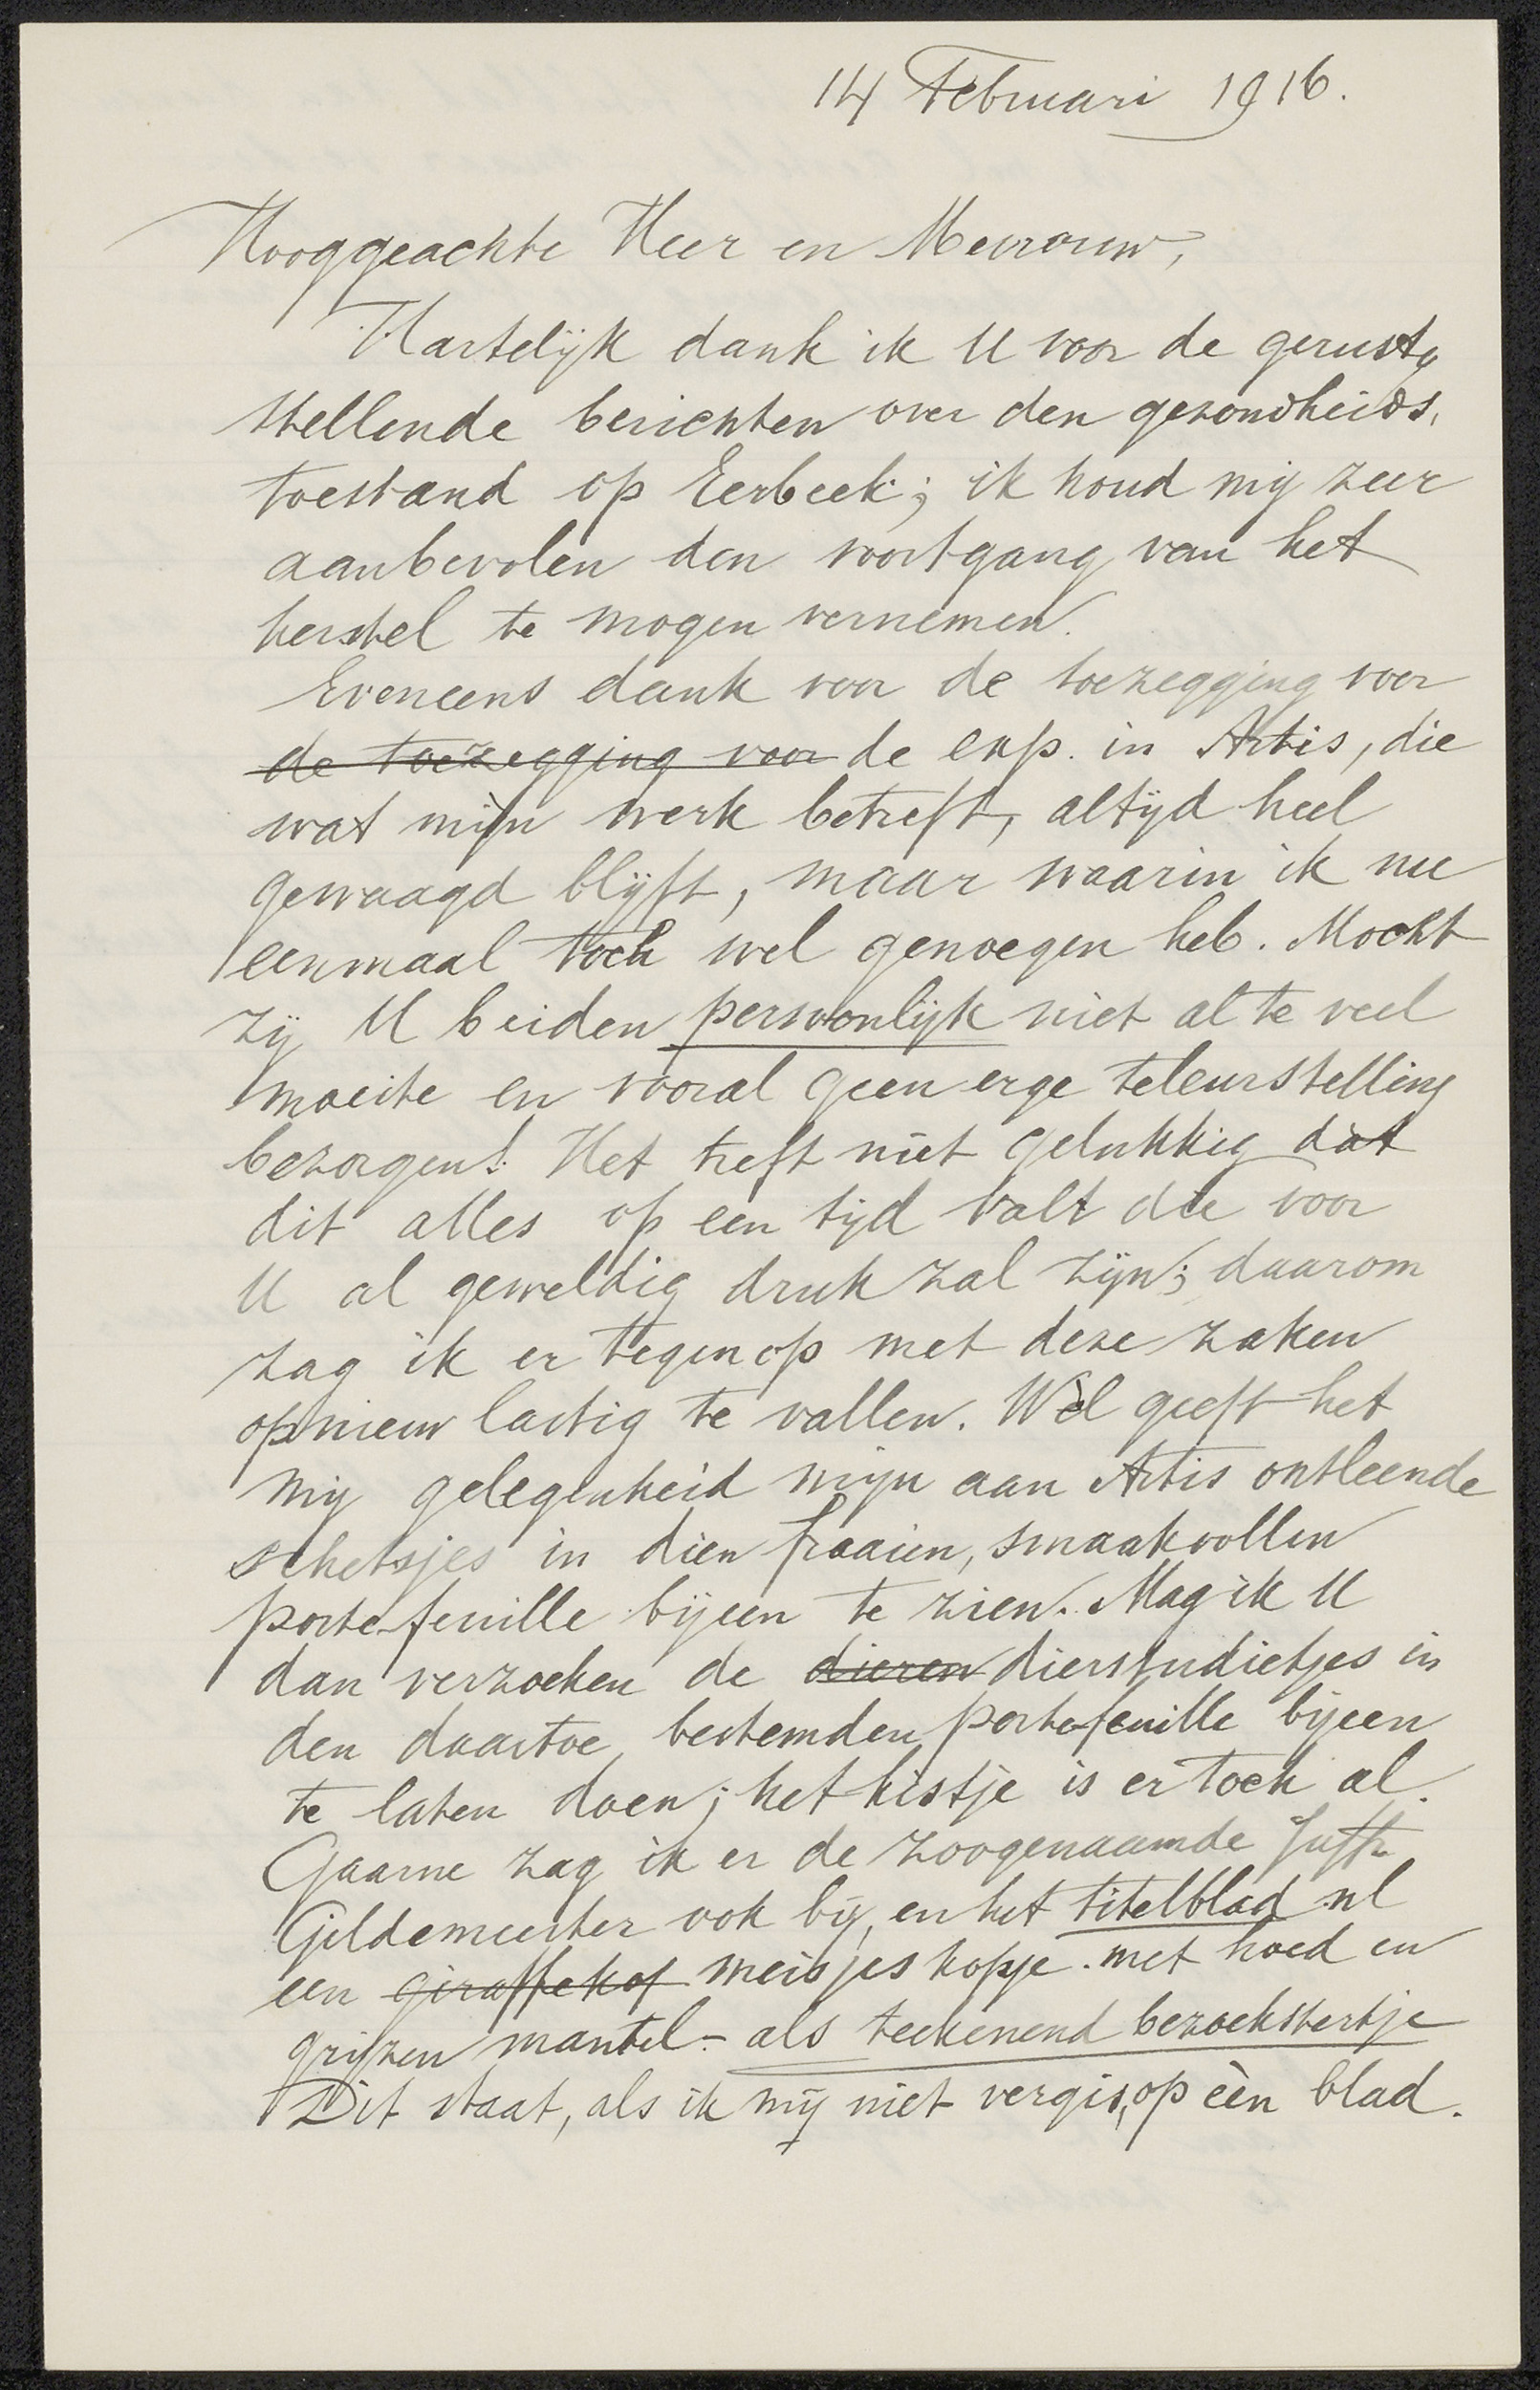 14 Februari 1916.
Hooggeachte Heer en Mevrouw,
Hartelijk dank ik U voor de gerust-
stellende berichten over den gezondheids-
toestand op Eerbeek; ik houd mij zeer
aanbevolen den voortgang van het
herstel te mogen vernemen.
Eveneens dank voor de toezegging voor
de toezegging voor de exp. in Artis, die
wat mijn werk betreft, altijd heel
gewaagd blijft, maar waarin ik nu
eenmaal toch wel genoegen heb. Mocht
zij U beiden persoonlijk niet al te veel
moeite en vooral geen erge teleurstelling
bezorgen! Het treft niet gelukkig dat
dit alles op een tijd valt die voor
U al geweldig druk zal zijn; daarom
zag ik er tegenop met deze zaken
opnieuw lastig te vallen. Wèl geeft het
mij gelegenheid mijn aan Artis ontleende
schetsjes in dien fraaien, smaakvollen
portefeuille bijeen te zien. Mag ik U
dan verzoeken de dieren dierstudietjes in
den daartoe bestemden portefeuille bijeen
te laten doen; het kistje is er toch al.
Gaarne zag ik er de zoogenaamde Juffr.
Gildemeester ook bij, en het titelblad nl
een giraffekop meisjeskopje met hoed en
grijzen mantel - als teekenend bezoekstertje
Dit staat, als ik mij niet vergis, op èèn blad.